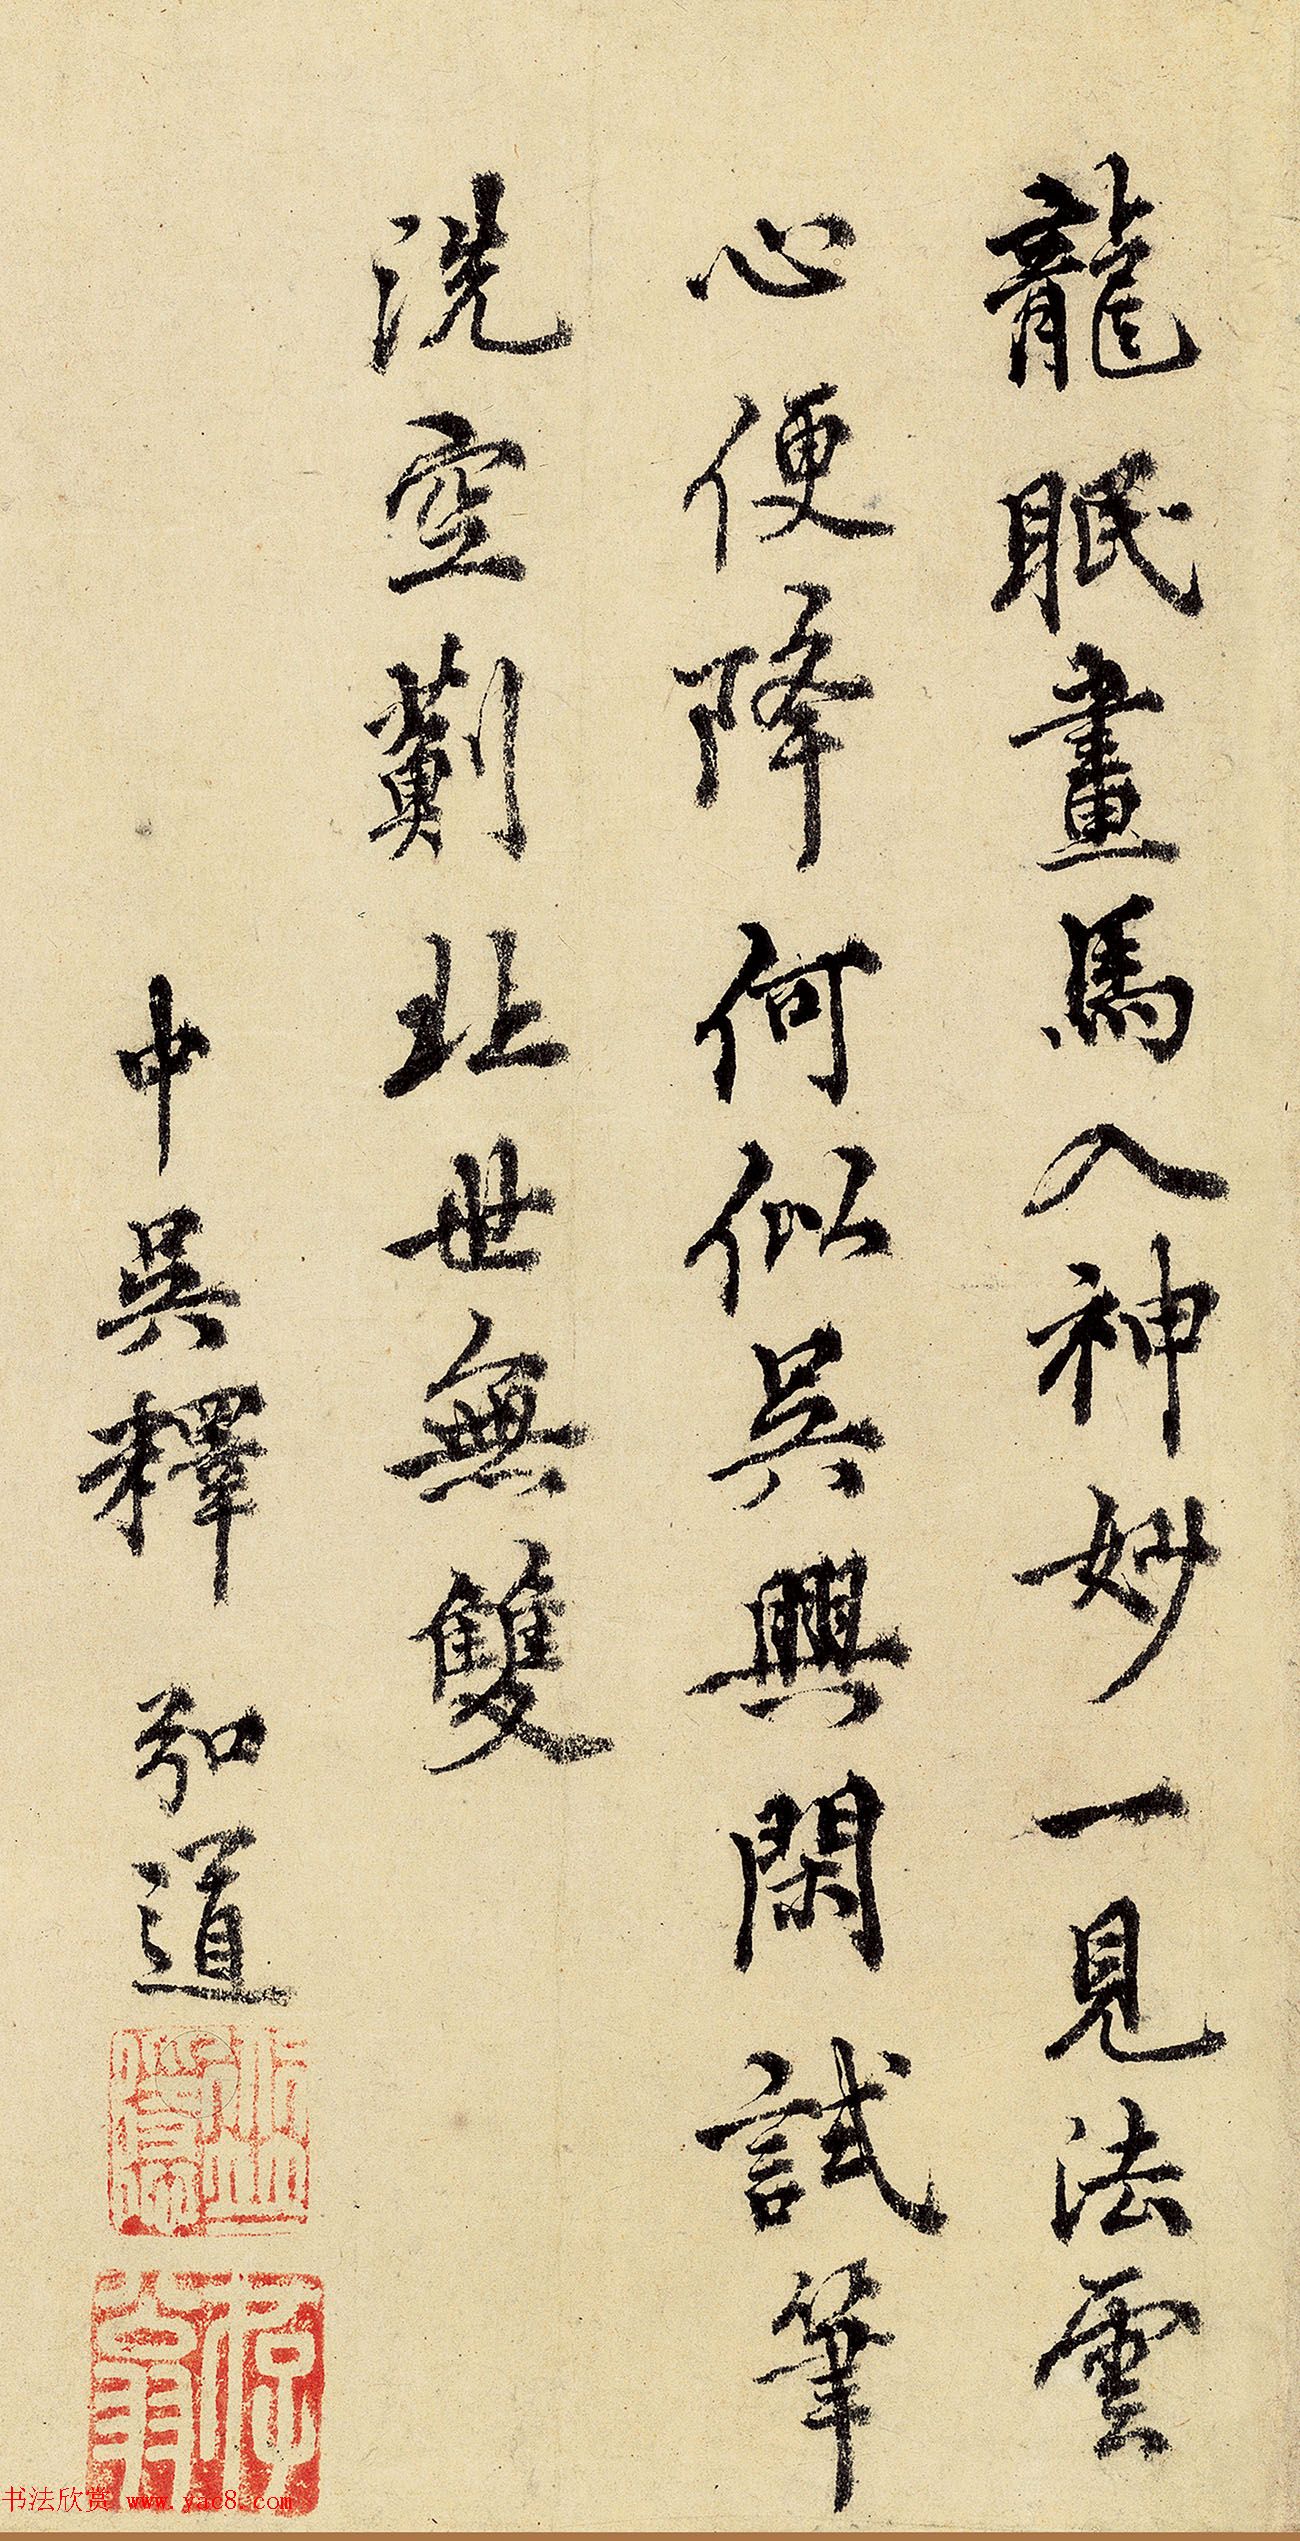 龍眠畫馬入神妙一見法雲
心便降何似吳興閑試筆
洗空薊北世無雙
中吳釋弘道
书法欣赏 www.yac8.com